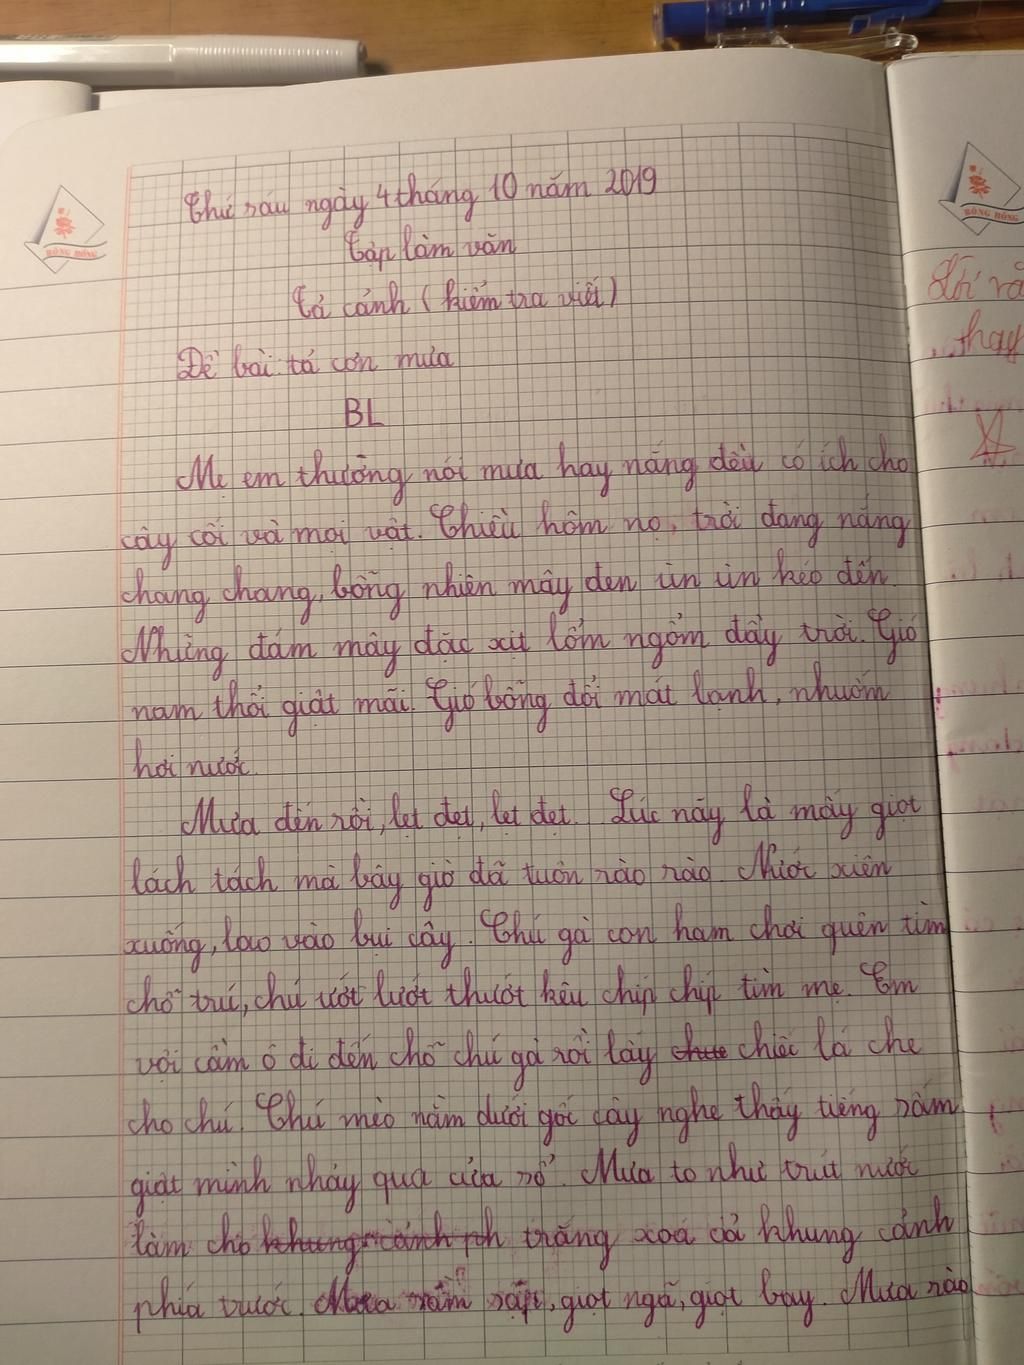 Thứ sáu ngày 4 tháng 10 năm 2019
Tập làm văn
Tả cảnh (kiểm tra viết)
Đề bài: tả cơn mưa
BL
Mẹ em thường nói mưa hay nắng đều có ích cho
cây cối và mọi vật. Chiều hôm nọ, trời đang nắng
chang chang, bỗng nhiên mây đen ùn ùn kéo đến.
Những đám mây đặc xịt lổm ngổm đầy trời. Gió
nam thổi giật mãi. Gió bỗng đổi mát lạnh, nhuốm
hơi nước.
Mưa đến rồi, lẹt đẹt, lẹt đẹt. Lúc nãy là mấy giọt
lách tách mà bây giờ đã tuôn rào rào. Nước xiên
xuống, lao vào bụi cây. Chú gà con ham chơi quên tìm
chỗ trú, chú ướt lướt thướt kêu chip chip tìm mẹ. Em
vội cầm ô đi đến chỗ chú gà rồi lấy chiếc lá che
cho chú. Chú mèo nằm dưới gốc cây nghe thấy tiếng sấm
giật mình nhảy qua cửa sổ. Mưa to như trút nước
làm cho khung cảnh ph trắng xoá cả khung cảnh
phía trước. Mưa rầm rập, giọt ngã, giọt bay. Mưa rào
BÔNG HỒNG
BÔNG HỒNG
thay